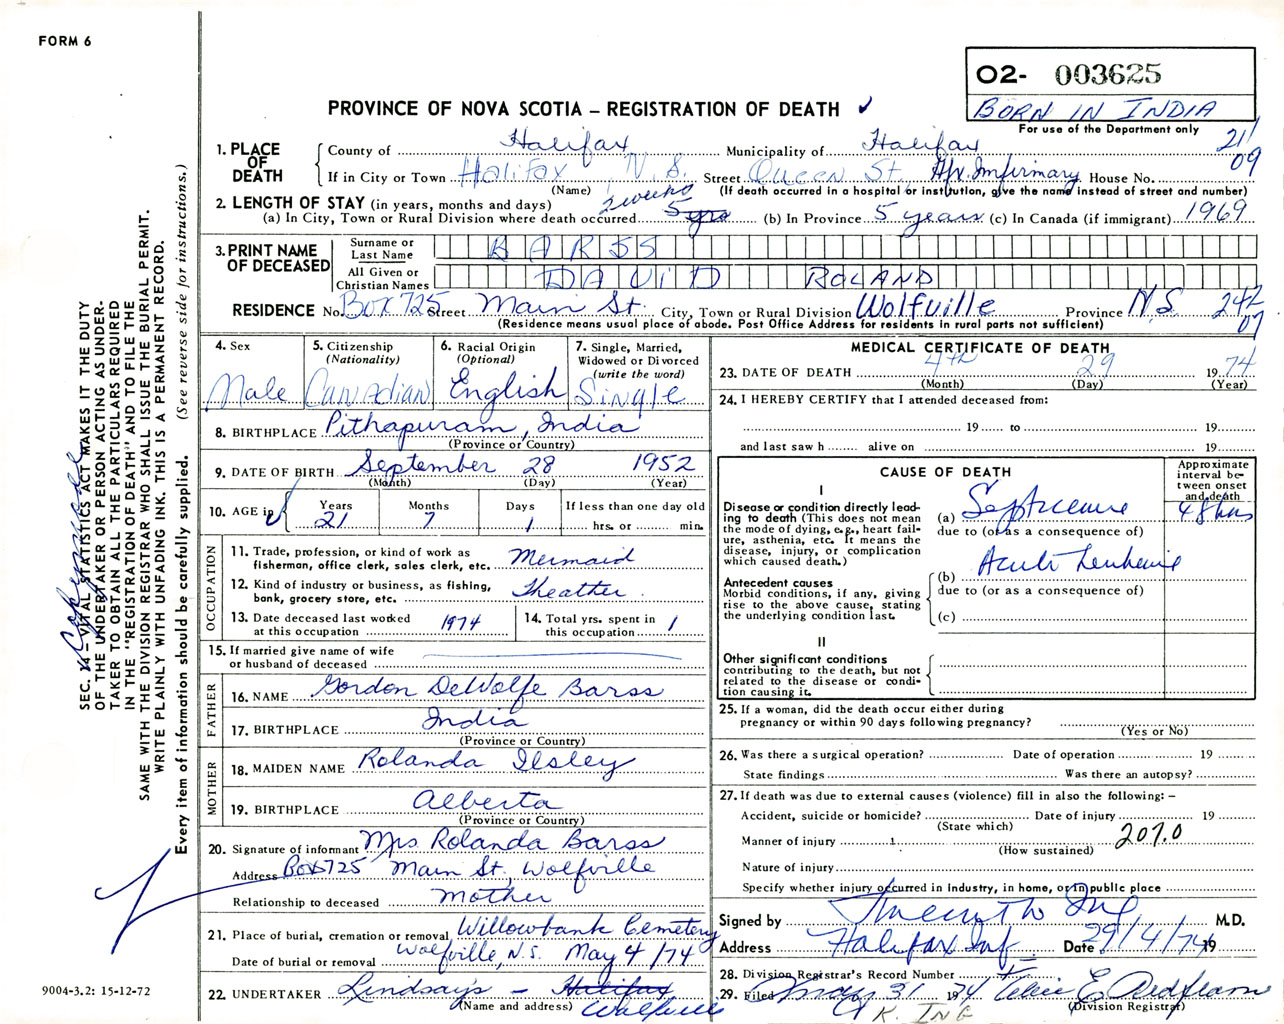 FORM 6
O2- 003625
BORN IN INDIA
For use of the Department only
PROVINCE OF NOVA SCOTIA – REGISTRATION OF DEATH ✓
21/
09
1. PLACE OF DEATH
County of Halifax Municipality of Halifax
If in City or Town Halifax N.S. Street Queen St Hfx. Infirmary House No.
(Name) (If death occurred in a hospital or institution, give the name instead of street and number)
2. LENGTH OF STAY (in years, months and days) 2 weeks
(a) In City, Town or Rural Division where death occurred 5 yrs (b) In Province 5 years (c) In Canada (if immigrant) 1969
3. PRINT NAME OF DECEASED
Surname or Last Name BARSS
All Given or Christian Names DAVID ROLAND
RESIDENCE No. Box 725 Street Main St. City, Town or Rural Division Wolfville Province N.S. 242
07
(Residence means usual place of abode. Post Office Address for residents in rural parts not sufficient)
4. Sex
Male
5. Citizenship
(Nationality)
Canadian
6. Racial Origin
(Optional)
English
7. Single, Married,
Widowed or Divorced
(write the word)
Single
8. BIRTHPLACE Pithapuram, India
(Province or Country)
9. DATE OF BIRTH September 28 1952
(Month) (Day) (Year)
10. AGE in
Years Months Days If less than one day old
21 7 1 hrs. or min.
OCCUPATION
11. Trade, profession, or kind of work as
fisherman, office clerk, sales clerk, etc. Mermaid
12. Kind of industry or business, as fishing,
bank, grocery store, etc. Theather
13. Date deceased last worked
at this occupation 1974
14. Total yrs. spent in
this occupation 1
15. If married give name of wife
or husband of deceased
FATHER
16. NAME Gordon DeWolfe Barss
17. BIRTHPLACE India
(Province or Country)
MOTHER
18. MAIDEN NAME Rolanda Ilsley
19. BIRTHPLACE Alberta
(Province or Country)
20. Signature of informant Mrs Rolanda Barss
Address Box 725 Main St, Wolfville
Relationship to deceased Mother
21. Place of burial, cremation or removal Willowbank Cemetery
Wolfville, N.S.
Date of burial or removal May 4/74
22. UNDERTAKER Lindsay's – Halifax
(Name and address) Wolfville
MEDICAL CERTIFICATE OF DEATH
23. DATE OF DEATH 4th 29 1974
(Month) (Day) (Year)
24. I HEREBY CERTIFY that I attended deceased from:
19 to 19
and last saw h alive on 19
CAUSE OF DEATH
Approximate
interval be-
tween onset
and death
I
Disease or condition directly lead-
ing to death (This does not mean
the mode of dying, e.g., heart fail-
ure, asthenia, etc. It means the
disease, injury, or complication
which caused death.)
(a) 48 hrs
due to (or as a consequence of)
Antecedent causes
Morbid conditions, if any, giving
rise to the above cause, stating
the underlying condition last.
(b) Acute
due to (or as a consequence of)
(c)
II
Other significant conditions
contributing to the death, but not
related to the disease or condi-
tion causing it.
25. If a woman, did the death occur either during
pregnancy or within 90 days following pregnancy?
(Yes or No)
26. Was there a surgical operation? Date of operation 19
State findings Was there an autopsy?
27. If death was due to external causes (violence) fill in also the following: –
Accident, suicide or homicide? Date of injury 19
(State which)
Manner of injury 207.0
(How sustained)
Nature of injury
Specify whether injury occurred in industry, in home, or in public place
Signed by M.D.
Address Halifax Inf. Date 29/4/74 19
28. Division Registrar's Record Number
29. Filed May 31 1974
(Division Registrar)
K. ING
SEC. 14 – VITAL STATISTICS ACT MAKES IT THE DUTY
OF THE UNDERTAKER OR PERSON ACTING AS UNDER-
TAKER TO OBTAIN ALL THE PARTICULARS REQUIRED
IN THE "REGISTRATION OF DEATH" AND TO FILE THE
SAME WITH THE DIVISION REGISTRAR WHO SHALL ISSUE THE BURIAL PERMIT.
WRITE PLAINLY WITH UNFADING INK. THIS IS A PERMANENT RECORD.
Every item of information should be carefully supplied. (See reverse side for instructions.)
9004-3.2: 15-12-72